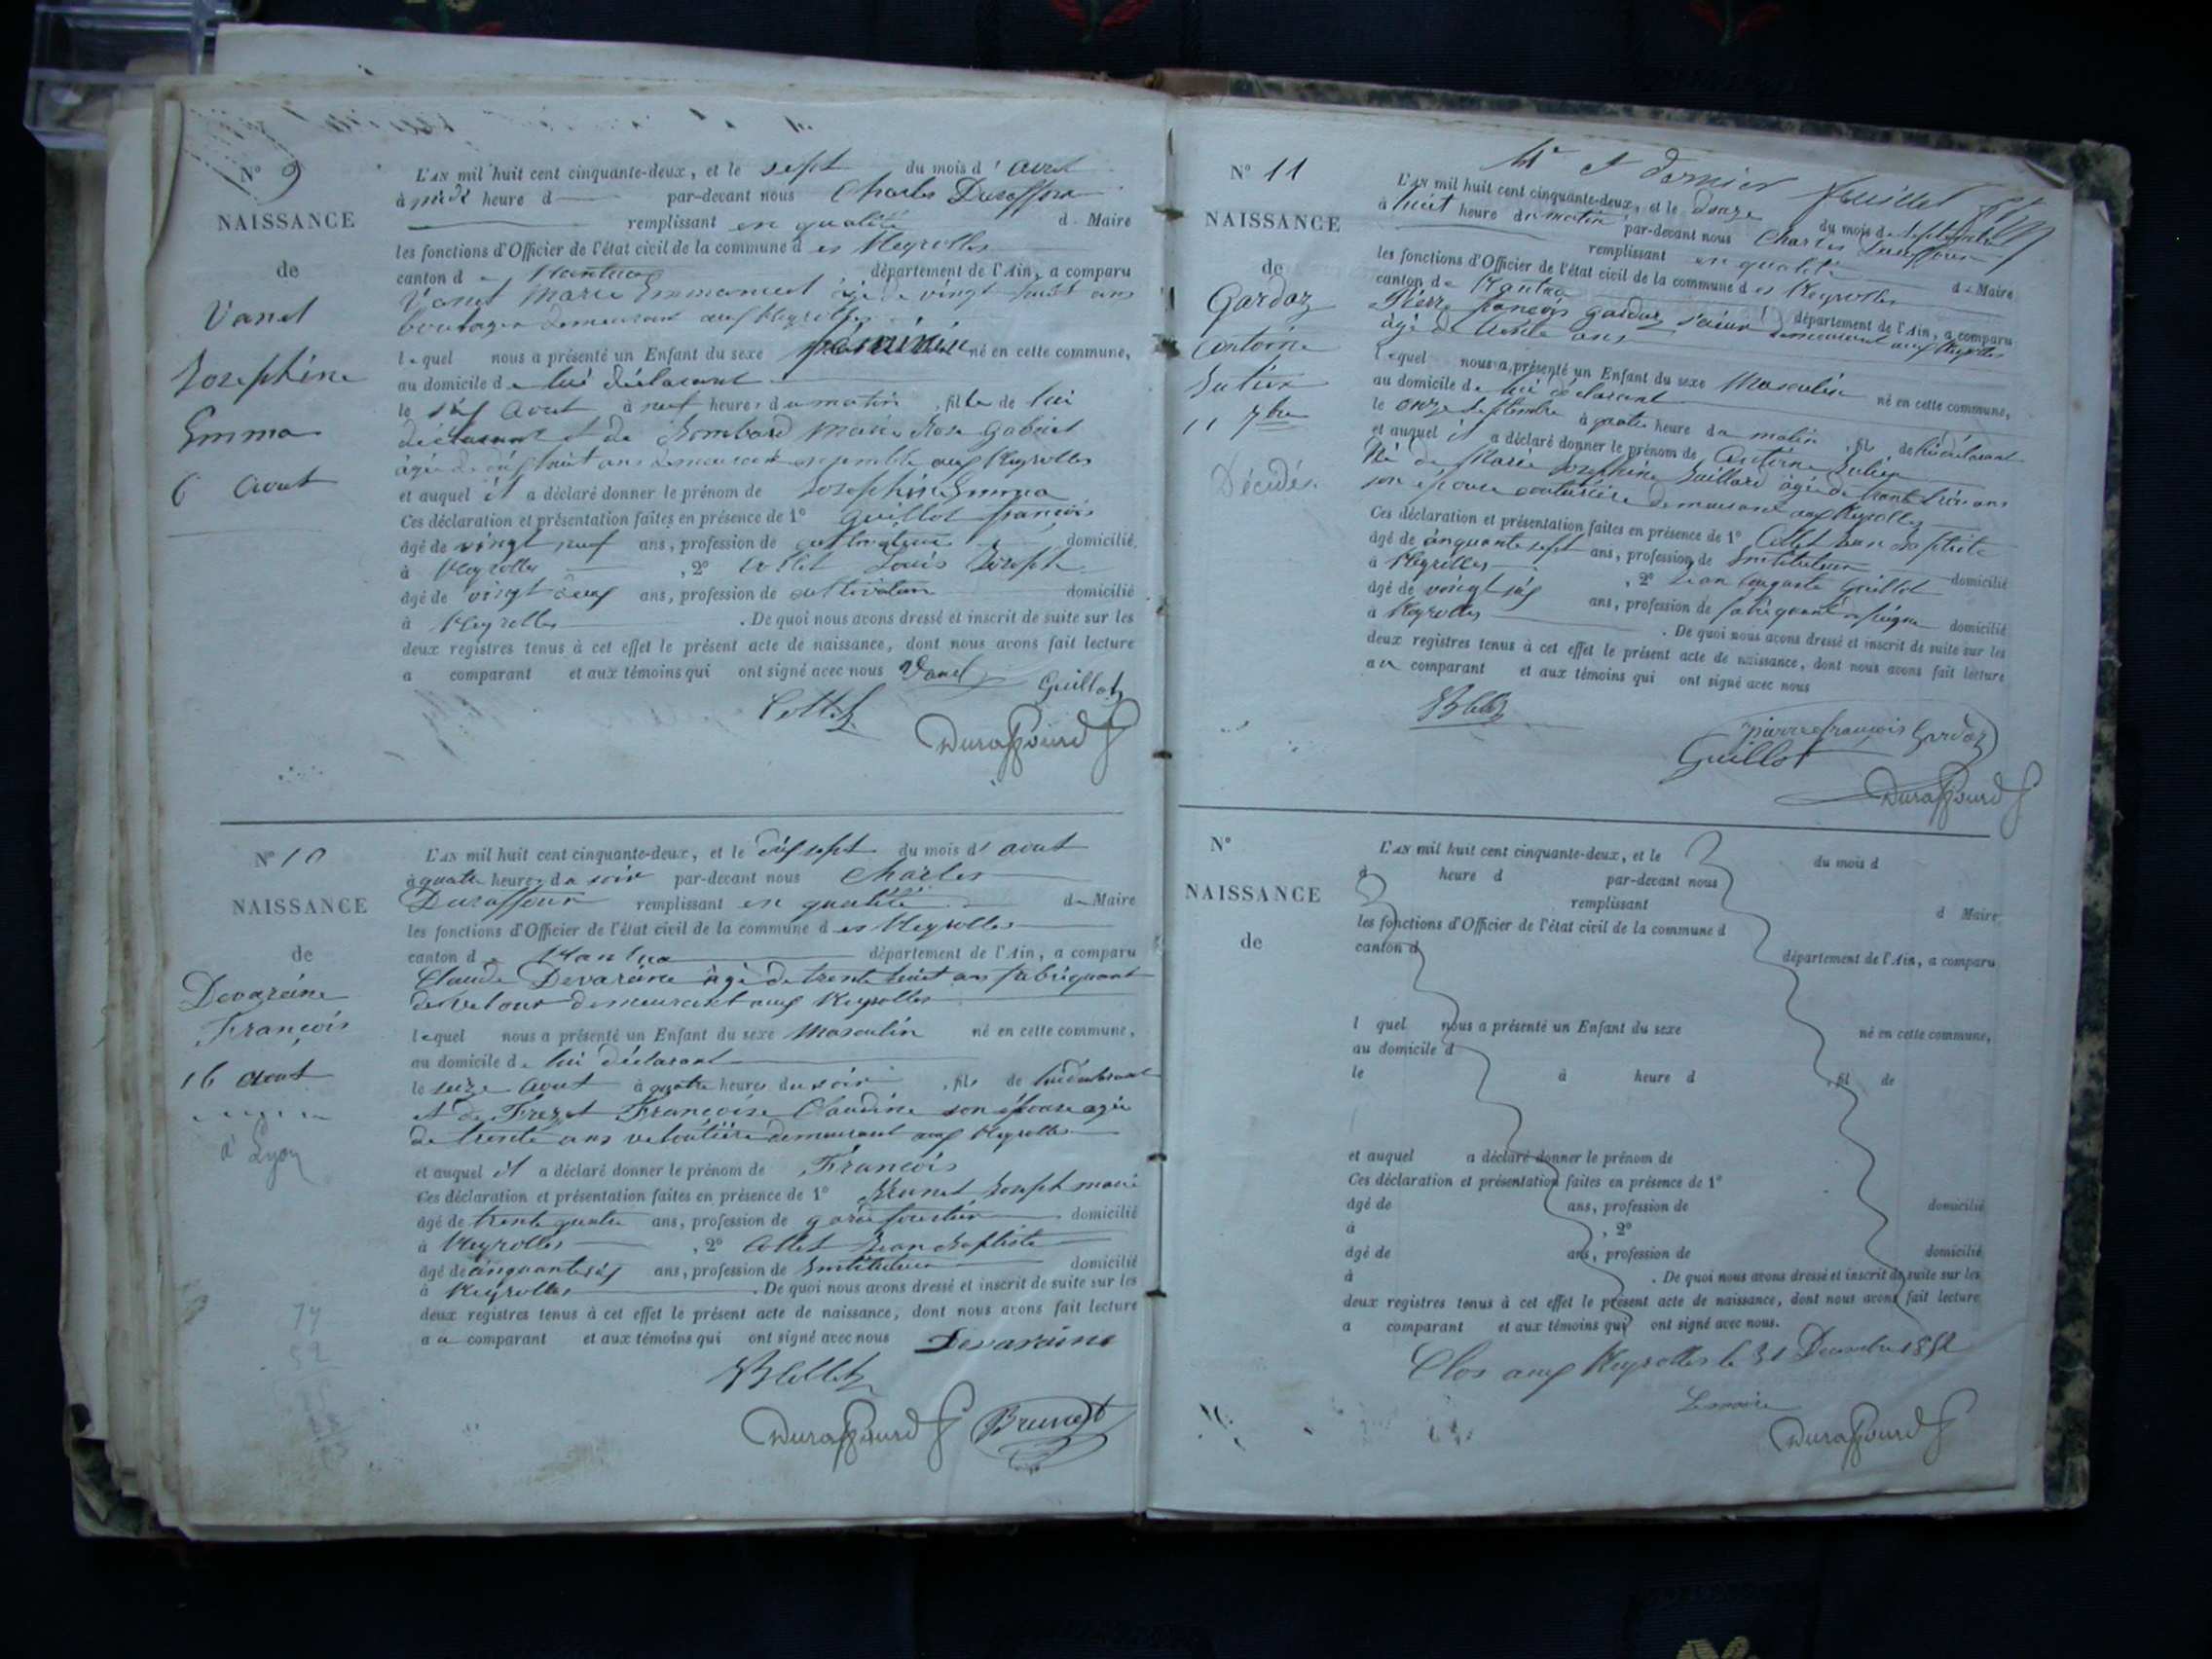 N° 9
NAISSANCE
de
Vanel
Josephine
Emma
6 Aout
L'AN mil huit cent cinquante-deux, et le sept du mois d' aout
à midi heure d par-devant nous Charles Duraffour
remplissant en qualité de Maire
les fonctions d'Officier de l'état civil de la commune des Neyrolles
canton de Nantua département de l'Ain, a comparu
Vanel Marie Emmanuel âgé de vingt huit ans
demeurant aux Neyrolles
lequel nous a présenté un Enfant du sexe féminin né en cette commune,
au domicile de lui déclarant
le six Aout à neuf heures du matin, fille de lui
déclarant et de Marie Rose Gabriel
âgée de dix huit ans demeurant ensemble aux Neyrolles
et auquel il a déclaré donner le prénom de Josephine Emma
Ces déclaration et présentation faites en présence de 1° Guillot françois
âgé de vingt neuf ans, profession de cultivateur domicilié
à Neyrolles, 2° Collet Louis Joseph
âgé de vingt deux ans, profession de cultivateur domicilié
à Neyrolles. De quoi nous avons dressé et inscrit de suite sur les
deux registres tenus à cet effet le présent acte de naissance, dont nous avons fait lecture
a comparant et aux témoins qui ont signé avec nous Vanel
Guillot
Collet
Duraffourd
N° 10
NAISSANCE
de
Devaraine
François
16 Aout
à Lyon
L'AN mil huit cent cinquante-deux, et le dix sept du mois d' aout
à quatre heures du soir par-devant nous Charles
Duraffour remplissant en qualité de Maire
les fonctions d'Officier de l'état civil de la commune des Neyrolles
canton de Nantua département de l'Ain, a comparu
Claude Devaraine âgé de trente huit ans fabriquant
de velour demeurant aux Neyrolles
lequel nous a présenté un Enfant du sexe Masculin né en cette commune,
au domicile de lui déclarant
le seize Aout à quatre heures du soir, fils de lui déclarant
et de Frezet Françoise Claudine son épouse agée
de trente ans veloutière demeurant aux Neyrolles
et auquel il a déclaré donner le prénom de François
Ces déclaration et présentation faites en présence de 1° Brunet Joseph marie
âgé de trente quatre ans, profession de garde forestier domicilié
à Neyrolles, 2° Collet Jean Baptiste
âgé de cinquante six ans, profession de Instituteur domicilié
à Neyrolles. De quoi nous avons dressé et inscrit de suite sur les
deux registres tenus à cet effet le présent acte de naissance, dont nous avons fait lecture
au comparant et aux témoins qui ont signé avec nous Devaraine
JBCollet
Duraffourd Brunet
74
52
et dernier feuillet
N° 11
NAISSANCE
de
Gardaz
Antoine
Julien
11 7bre
Décédé.
L'AN mil huit cent cinquante-deux, et le douze du mois de Septembre
à huit heure du matin par-devant nous Charles Duraffour
remplissant en qualité de Maire
les fonctions d'Officier de l'état civil de la commune des Neyrolles
canton de Nantua département de l'Ain, a comparu
Pierre françois Gardaz demeurant aux Neyrolles
âgé de trente ans
lequel nous a présenté un Enfant du sexe Masculin né en cette commune,
au domicile de lui déclarant
le onze Septembre à quatre heure du matin, fils de lui déclarant
et auquel il a déclaré donner le prénom de Antoine Julien
Né de Marie Josephine Guillard âgée de trente trois ans
son épouse couturière demeurant aux Neyrolles
Ces déclaration et présentation faites en présence de 1° Collet Jean Baptiste
âgé de cinquante sept ans, profession de Instituteur domicilié
à Neyrolles, 2° Jean Auguste Guillot
âgé de vingt six ans, profession de fabriquant de peigne domicilié
à Neyrolles. De quoi nous avons dressé et inscrit de suite sur les
deux registres tenus à cet effet le présent acte de naissance, dont nous avons fait lecture
au comparant et aux témoins qui ont signé avec nous
JBCollet
pierre françois Gardaz
Guillot
Duraffourd
N°
NAISSANCE
de
L'AN mil huit cent cinquante-deux, et le du mois d
à heure d par-devant nous
remplissant d Maire
les fonctions d'Officier de l'état civil de la commune d
canton d département de l'Ain, a comparu
l quel nous a présenté un Enfant du sexe né en cette commune,
au domicile d
le à heure d , fil de
et auquel a déclaré donner le prénom de
Ces déclaration et présentation faites en présence de 1°
âgé de ans, profession de domicilié
à , 2°
âgé de ans, profession de domicilié
à . De quoi nous avons dressé et inscrit de suite sur les
deux registres tenus à cet effet le présent acte de naissance, dont nous avons fait lecture
a comparant et aux témoins qui ont signé avec nous.
Clos aux Neyrolles le 31 Decembre 1852
Le maire
Duraffourd